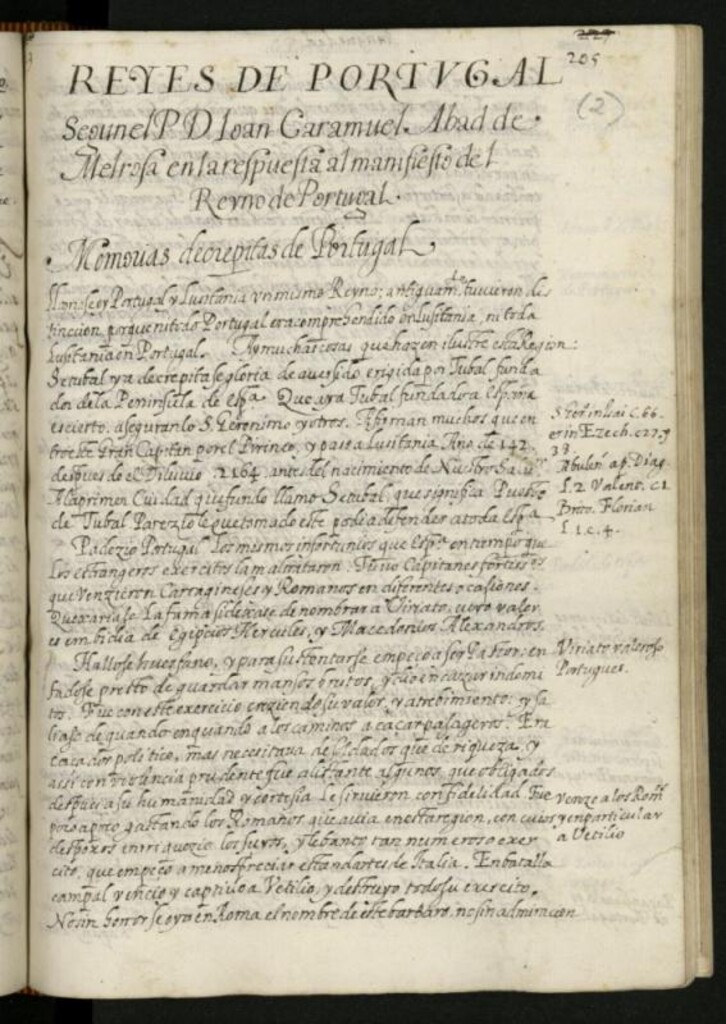 205
(2)
REYES DE PORTVGAL
Segun el P D Ioan Caramuel. Abad de
Melrosa en la respuesta al manifiesto del
Reyno de Portugal.
Memorias decrepitas de Portugal.
oy Portugal y Lusitania un mismo Reyno; antiguam.te tuuieron dis
tincion, porque ni todo Portugal era comprehendido en Lusitania, ni toda
Lusitania en Portugal. Ay muchas cosas que hazen ilustre esta Region:
Setubal ya decrepita se gloria de auer sido erigida por Tubal funda
dor de la Peninsula de Esp.a Que aya Tubal fundado a España
es cierto, aseguranlo S. Geronimo y otros. Afirman muchos que en
tro este Gran Capitan por el Pirineo, y paso a Lusitania Año de 142
despues de el Diluuio. 2164. antes del nacimiento de Nuestro
A la primera Ciudad que fundo llamo Setubal, que significa Puesto
de Tubal que tomado este podia defender a toda Esp.a
Padezio Portugal los mismos infortunios que Esp.a en tiempo que
los estrangeros exercitos la maltrataron. Tuuo Capitanes fortis.os
que Venzieron Cartagineses y Romanos en diferentes ocasiones.
Quexariase La fama si dexase de nombrar a Viriato, cuyo valor
es embidia de Egipcios Hercules, y Macedonios Alexandros.
Hallose huerfano, y para sustentarse empeço a ser Pastor: en
fadose presto de guardar mansos brutos, y dio en cazar indomi
tos. Fue con este exercicio creziendo su valor, y atrebimiento: y sa
liase de quando en quando a los caminos a caçar pasageros. Era
caçador politico, mas necesitaua de soldados que de riqueza, y
assi con violencia prudente fue alistando algunos, que obligados
despues a su humanidad y cortesia Le siruieron con fidelidad. Fue
poco a poco gastando los Romanos que auia en esta region, con cuios
despoxos enriquezio los suyos, y lebanto tan numeroso exer
cito, que empeço a menospreciar estandartes de Italia. En batalla
campal vencio y captiuo a Vetilio, y destruyo todo su exercito.
No sin horror se oyo en Roma el nombre de este barbaro, no sin admiracion
S Ger. in Isai c. 66.
et in Ezech. c 27. y
38
Abulen. ap. Diag
l. 2 Valent. c 1
Brito. Florian
l 1. c. 4.
Viriato valeroso
Portugues.
Venze a los Rom.os
y en particular
a Vetilio